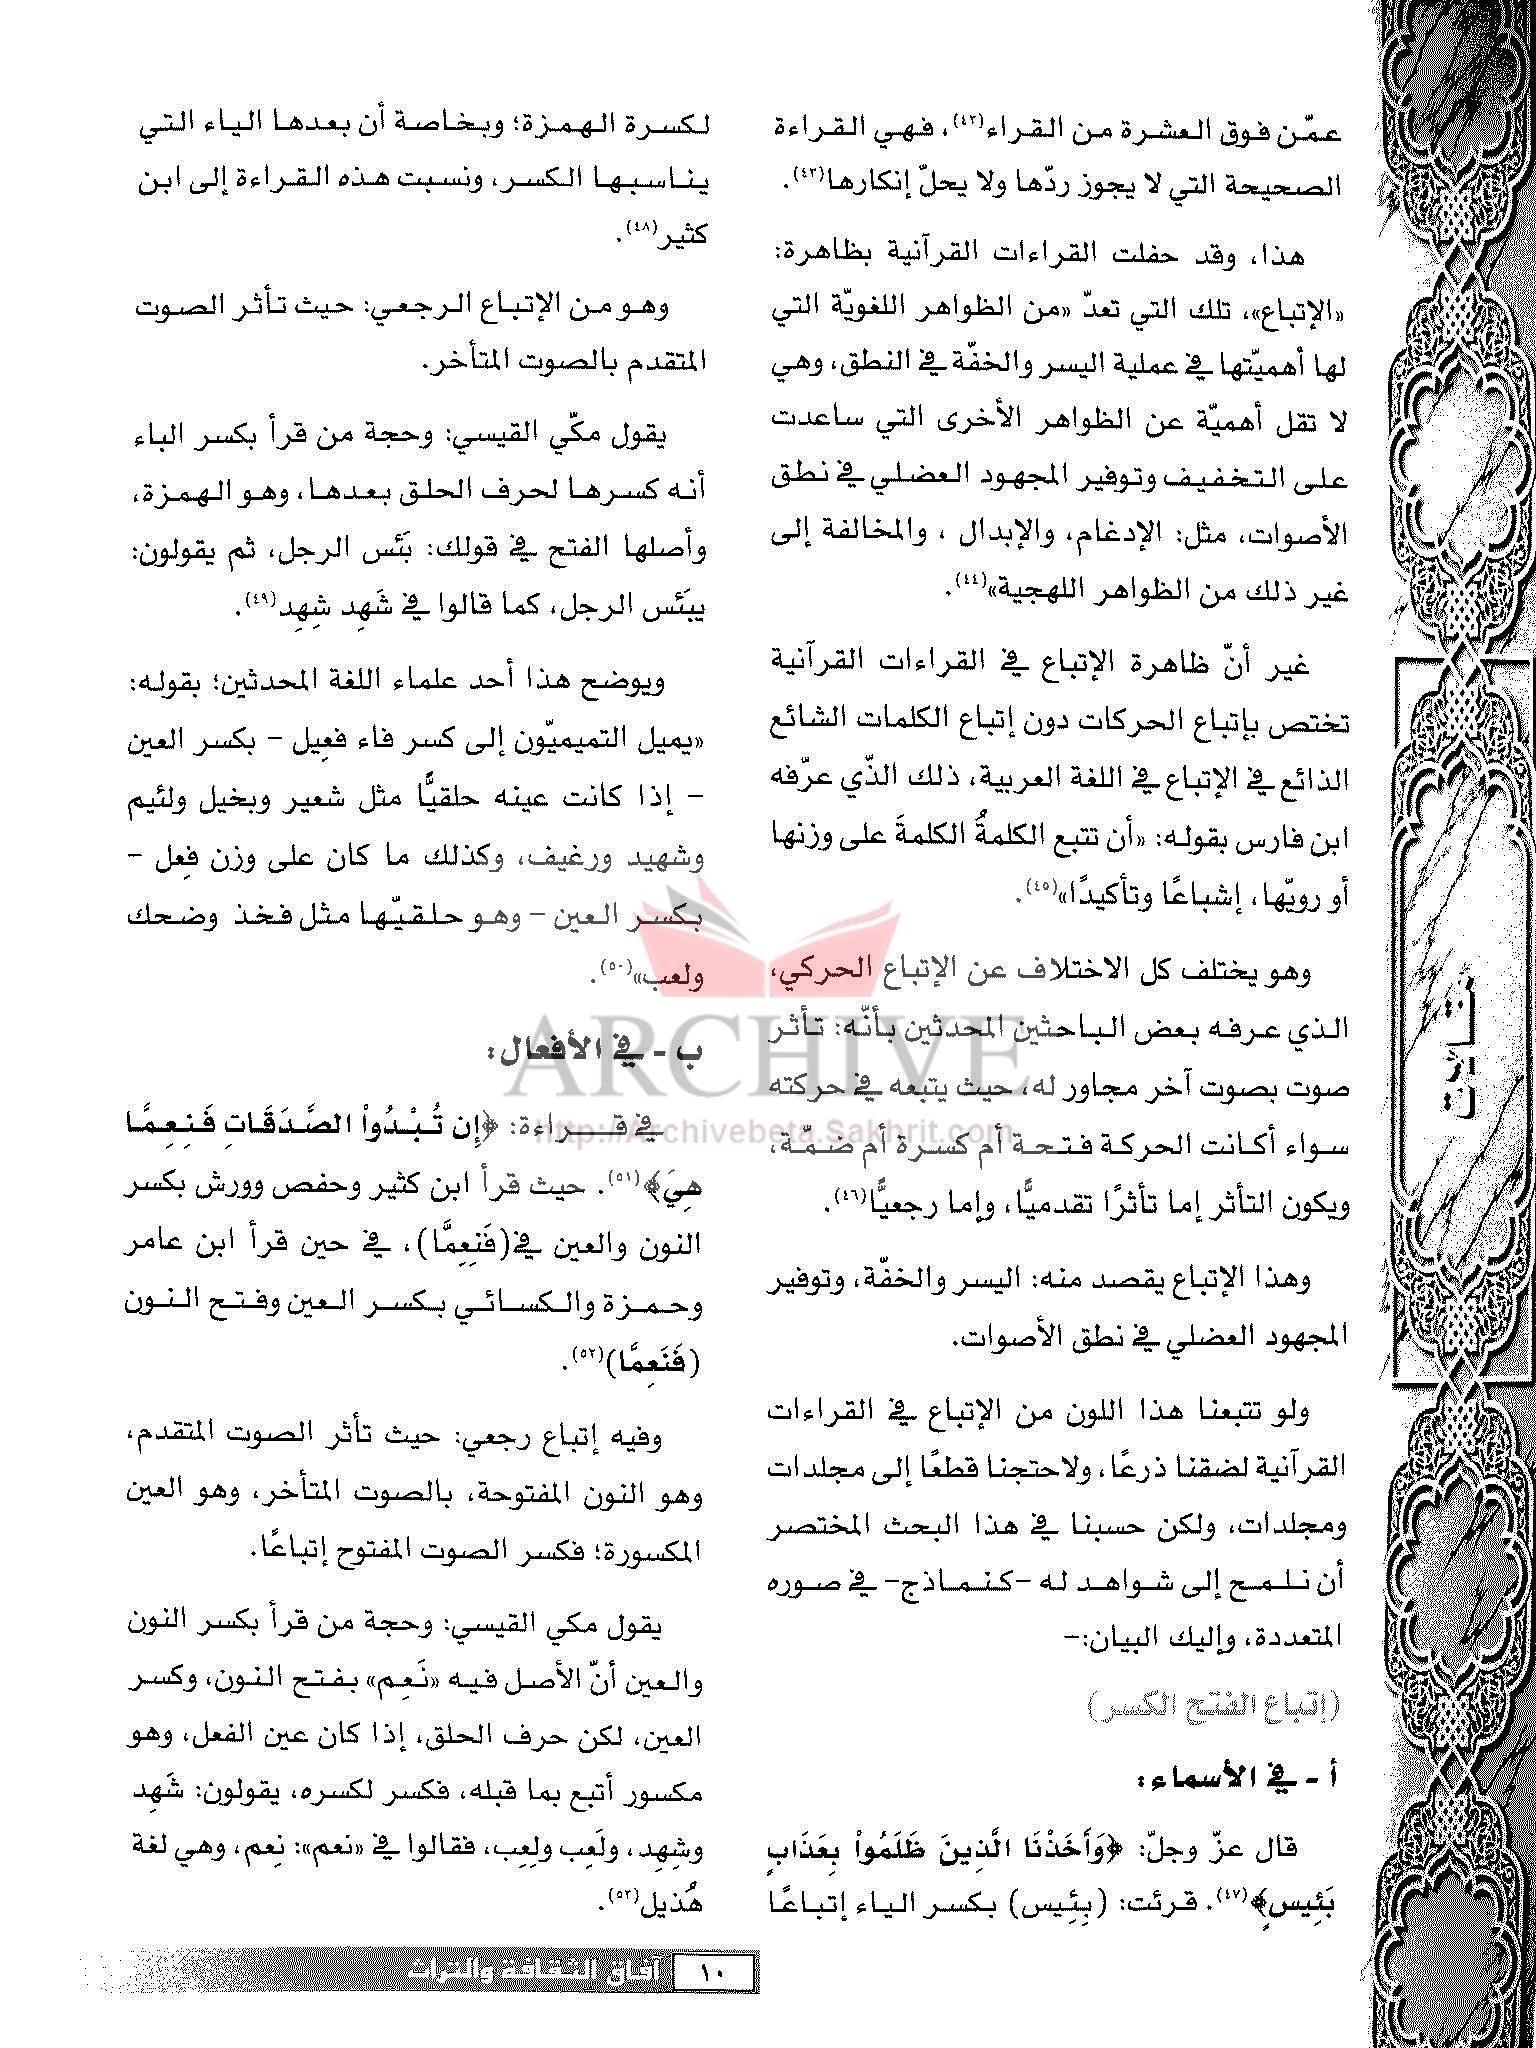 عمّن فوق العشرة من القراء(٤٢)، فهي القراءة
الصحيحة التي لا يجوز ردّها ولا يحلّ إنكارها(٤٣).
هذا، وقد حفلت القراءات القرآنية بظاهرة:
«الإتباع»، تلك التي تعدّ «من الظواهر اللغويّة التي
لها أهميّتها في عملية اليسر والخفّة في النطق، وهي
لا تقل أهميّة عن الظواهر الأخرى التي ساعدت
على التخفيف وتوفير المجهود العضلي في نطق
الأصوات، مثل: الإدغام، والإبدال ، والمخالفة إلى
غير ذلك من الظواهر اللهجية»(٤٤).
غير أنّ ظاهرة الإتباع في القراءات القرآنية
تختص بإتباع الحركات دون إتباع الكلمات الشائع
الذائع في الإتباع في اللغة العربية، ذلك الذّي عرّفه
ابن فارس بقوله: «أن تتبع الكلمةُ الكلمةَ على وزنها
أو رويّها، إشباعًا وتأكيدًا»(٤٥).
وهو يختلف كل الاختلاف عن الإتباع الحركي،
الذي عرفه بعض الباحثين المحدثين بأنّه: تأثر
صوت بصوت آخر مجاور له، حيث يتبعه في حركته
سواء أكانت الحركة فتحة أم كسرة أم ضمّة،
ويكون التأثر إما تأثرًا تقدميًّا، وإما رجعيًّا(٤٦).
وهذا الإتباع يقصد منه: اليسر والخفّة، وتوفير
المجهود العضلي في نطق الأصوات.
ولو تتبعنا هذا اللون من الإتباع في القراءات
القرآنية لضقنا ذرعًا، ولاحتجنا قطعًا إلى مجلدات
ومجلدات، ولكن حسبنا في هذا البحث المختصر
أن نلمح إلى شواهد له -كنماذج- في صوره
المتعددة، وإليك البيان:-
(إتباع الفتح الكسر)
أ - في الأسماء:
قال عزّ وجلّ: ﴿وَأَخَذْنَا الَّذِينَ ظَلَمُواْ بِعَذَابٍ
بَئِيسٍ﴾(٤٧). قرئت: (بِئِيس) بكسر الباء إتباعًا
لكسرة الهمزة؛ وبخاصة أن بعدها الياء التي
يناسبها الكسر، ونسبت هذه القراءة إلى ابن
كثير(٤٨).
وهو من الإتباع الرجعي: حيث تأثر الصوت
المتقدم بالصوت المتأخر.
يقول مكّي القيسي: وحجة من قرأ بكسر الباء
أنه كسرها لحرف الحلق بعدها، وهو الهمزة،
وأصلها الفتح في قولك: بَئَس الرجل، ثم يقولون:
يبَئَس الرجل، كما قالوا في شَهِد شِهِد(٤٩).
ويوضح هذا أحد علماء اللغة المحدثين؛ بقوله:
«يميل التميميّون إلى كسر فاء فعِيل - بكسر العين
- إذا كانت عينه حلقيًّا مثل شعير وبخيل ولئيم
وشهيد ورغيف، وكذلك ما كان على وزن فعِل -
بكسر العين - وهو حلقيّها مثل فخذ وضحك
ولعب»(٥٠).
ب - في الأفعال:
في قراءة: ﴿إِن تُبْدُواْ الصَّدَقَاتِ فَنِعِمَّا
هِيَ﴾(٥١). حيث قرأ ابن كثير وحفص وورش بكسر
النون والعين في(فَنِعِمَّا)، في حين قرأ ابن عامر
وحمزة والكسائي بكسر العين وفتح النون
(فَنَعِمَّا)(٥٢).
وفيه إتباع رجعي: حيث تأثر الصوت المتقدم،
وهو النون المفتوحة، بالصوت المتأخر، وهو العين
المكسورة؛ فكسر الصوت المفتوح إتباعًا.
يقول مكي القيسي: وحجة من قرأ بكسر النون
والعين أنّ الأصل فيه «نَعِم» بفتح النون، وكسر
العين، لكن حرف الحلق، إذا كان عين الفعل، وهو
مكسور أتبع بما قبله، فكسر لكسره، يقولون: شَهِد
وشِهِد، ولَعِب ولِعِب، فقالوا في «نعم»: نِعِم، وهي لغة
هُذيل(٥٣).
مقالات
ARCHIVE
http://Archivebeta.Sakhrit.com
١٠ آفاق الثقافة والتراث